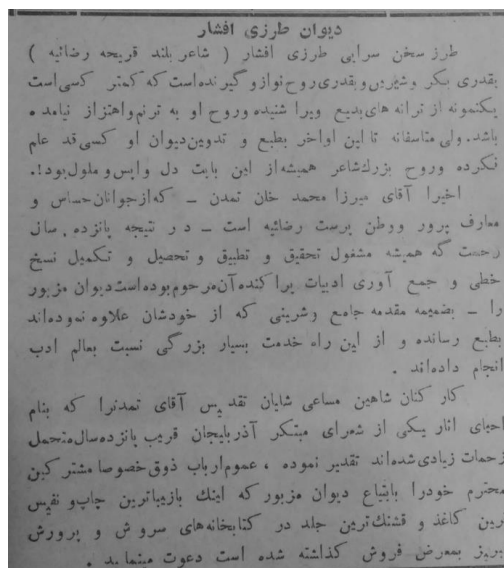 دیوان طرزی افشار
طرز سخن سرایی طرزی افشار ( شاعر بلند قریحه رضائیه )
بقدری بکر و شیرین و بقدری روح نواز و گیرنده است که کمتر کسی است
یکنمونه از ترانه های بدیع ویرا شنیده و روح او به ترنم واهتزاز نیامده
باشد. ولی متاسفانه تا این اواخر بطبع و تدوین دیوان او کسی قد علم
نکرده و روح بزرك شاعر همیشه از این بابت دل واپس و ملول بود!.
اخیرا آقای میرزا محمد خان تمدن ـ که از جوانان حساس و
معارف پرور ووطن پرست رضائیه است ـ در نتیجه پانزده سال
زحمت که همیشه مشغول تحقیق و تطبیق و تحصیل و تکمیل نسخ
خطی و جمع آوری ادبیات پراکنده آن مرحوم بوده است دیوان مزبور
را ـ بضمیمه مقدمه جامع وشرینی که از خودشان علاوه نموده اند
بطبع رسانده و از این راه خدمت بسیار بزرگی نسبت بعالم ادب
انجام داده اند .
کار کنان شاهین مساعی شایان تقدیس آقای تمدنرا که بنام
احیای اثار یکی از شعرای مبتکر آذربایجان قریب پانزده سال متحمل
زحمات زیادی شده اند تقدیر نموده ، عموم ارباب ذوق خصوصا مشترکین
محترم خودرا بابتیاع دیوان مزبور که اینك بازیباترین چاپ و نفیس
ترین کاغذ و قشنك ترین جلد در کتابخانه های سروش و پرورش
تبریز بمعرض فروش گذاشته شده است دعوت مینماید .